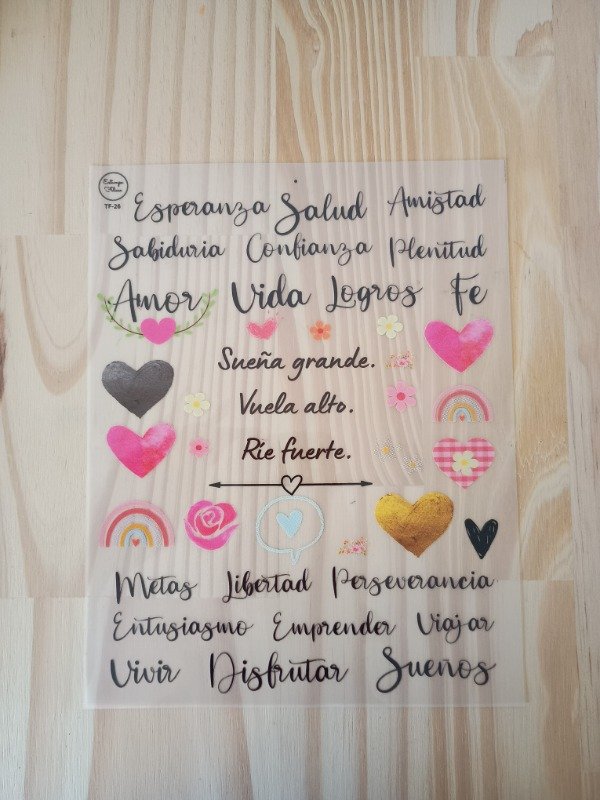 TF-26
Esperanza Salud Amistad
Sabiduria Confianza Plenitud
Amor Vida Logros Fe
Sueña grande.
Vuela alto.
Ríe fuerte.
Metas Libertad Perseverancia
Entusiasmo Emprender Viajar
Vivir Disfrutar Sueños